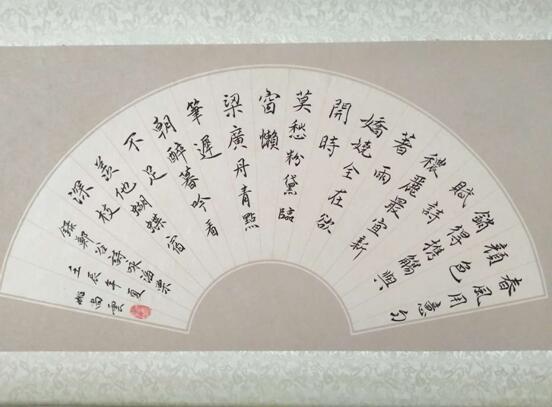 春風用意勻
顏色
銷得攜觴與
賦詩
穠麗最宜新
著雨
嬌嬈全在欲
開時
莫愁粉黛臨
窗懶
梁廣丹青點
筆遲
朝醉暮吟看
不足
羨他蝴蝶宿
深枝
錄鄭谷詩咏海棠
壬辰年夏